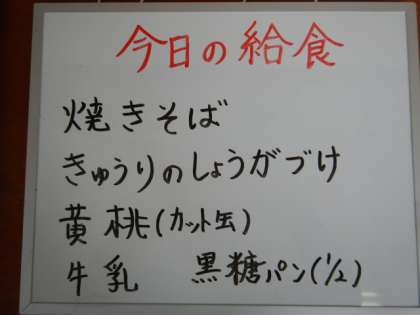 今日の給食
焼きそば
きゅうりのしょうがづけ
黄桃(カット缶)
牛乳 黒糖パン(1/2)